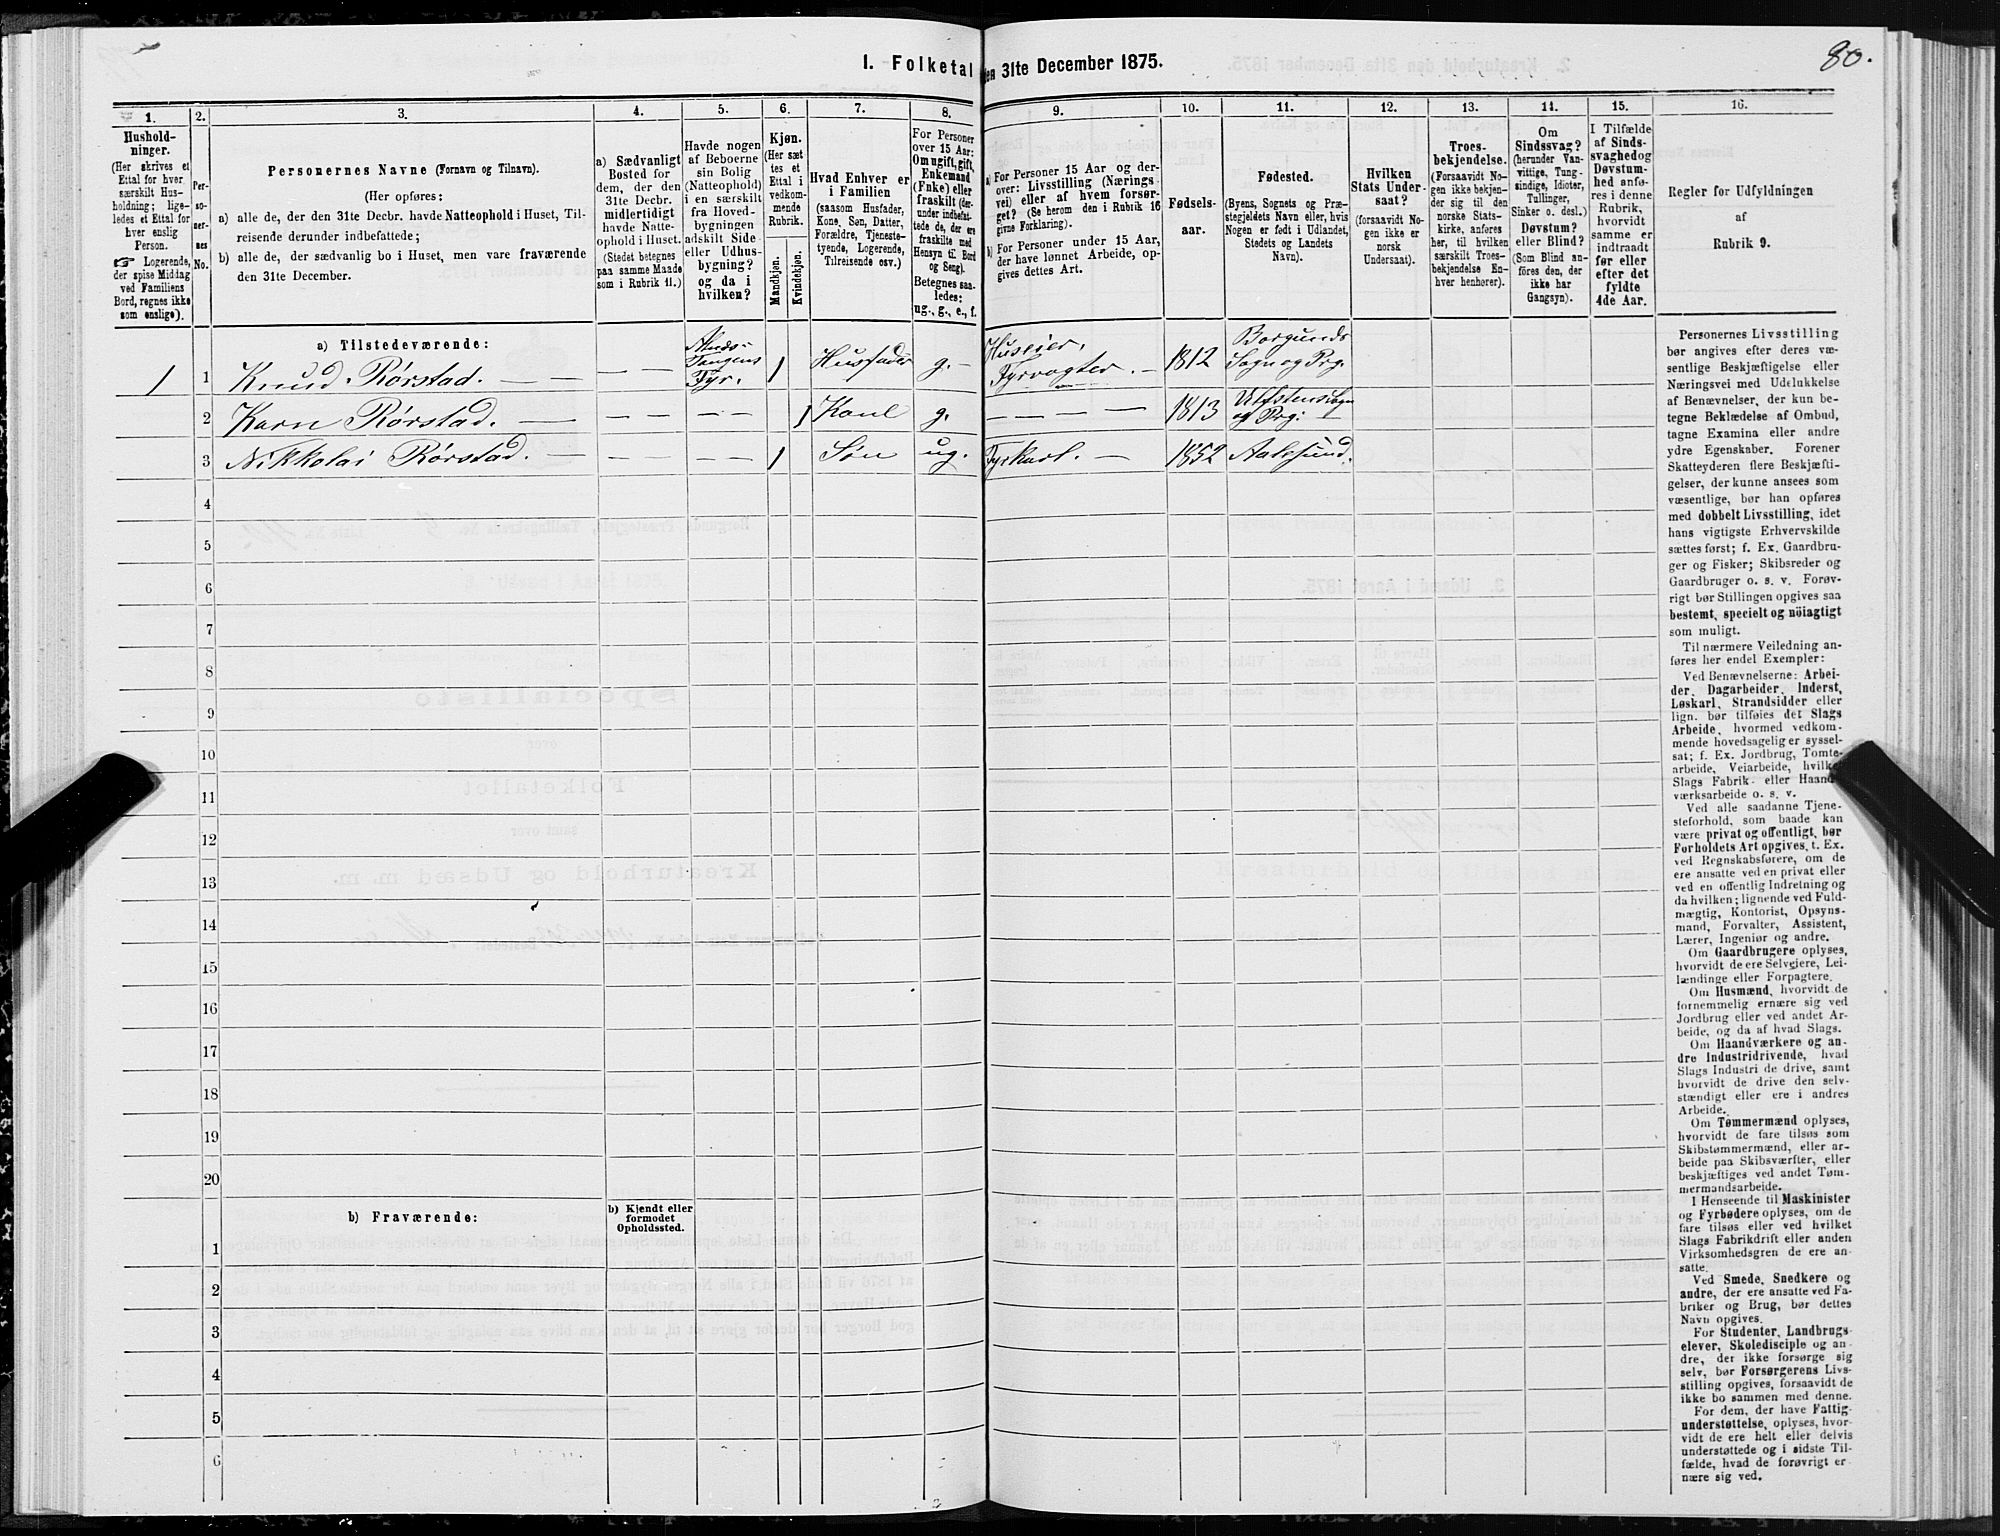 80.
I. Folketal den 31te December 1875.
1.
Hushold-
ninger.
(Her skrives et
Ettal for hver
særskilt Hus-
holdning; lige-
ledes et Ettal for
hver enslig
Person.
☞ Logerende,
der spise Middag
ved Familiens
Bord, regnes ikke
som enslige).
2.
Per-
so-
ner-
nes
No.
3.
Personernes Navne (Fornavn og Tilnavn).
(Her opføres:
a) alle de, der den 31te Decbr. havde Natteophold i Huset, Til-
reisende derunder indbefattede;
b) alle de, der sædvanlig bo i Huset, men vare fraværende
den 31te December.
4.
a) Sædvanligt
Bosted for
dem, der den
31te Decbr.
midlertidigt
havde Natte-
ophold i Huset.
(Stedet betegnes
paa samme Maade
som i Rubrik 11.)
5.
Havde nogen
af Beboerne
sin Bolig
(Natteophold)
i en særskilt
fra Hoved-
bygningen
adskilt Side-
eller Udhus-
bygning?
og da i
hvilken?
6.
Kjøn.
(Her sæt-
tes et
Ettal i
vedkom-
mende
Rubrik.
Mandkjøn.
Kvindekjøn.
7.
Hvad Enhver er
i Familien
(saasom Husfader,
Kone, Søn, Datter,
Forældre, Tjeneste-
tyende, Logerende,
Tilreisende osv.)
8.
For Personer
over 15 Aar:
Om ugift, gift,
Enkemand
(Enke) eller
fraskilt (der-
under indbefat-
tede de, der ere
fraskilte med
Hensyn til Bord
og Seng).
Betegnes saa-
ledes:
ug., g., e., f.
9.
a) For Personer 15 Aar og der-
over: Livsstilling (Nærings-
vei) eller af hvem forsør-
get? (Se herom den i Rubrik 16
givne Forklaring).
b) For Personer under 15 Aar,
der have lønnet Arbeide, op-
gives dettes Art.
10.
Fødsels-
aar.
11.
Fødested.
(Byens, Sognets og Præ-
stegjeldets Navn eller, hvis
Nogen er født i Udlandet,
Stedets og Landets
Navn).
12.
Hvilken
Stats Under-
saat?
(forsaavidt No-
gen ikke er
norsk
Undersaat).
13.
Troes-
bekjendelse.
(Forsaavidt No-
gen ikke bekjen-
der sig til den
norske Stats-
kirke, anføres
her, til hvilken
særskilt Troes-
bekjendelse En-
hver henhører).
14.
Om
Sindssvag?
(herunder Van-
vittige, Tung-
sindige, Idioter,
Tullinger,
Sinker o. desl.)
Døvstum?
eller Blind?
(Som Blind an-
føres den, der
ikke har
Gangsyn).
15.
I Tilfælde
af Sinds-
svaghed og
Døvstum-
hed anfø-
res i denne
Rubrik,
hvorvidt
samme er
indtraadt
før eller
efter det
fyldte
4de Aar.
16.
Regler for Udfyldningen
af
Rubrik 9.
a) Tilstedeværende:
1 1 Knud Rørstad. — — — — Fyr. 1 Husfader g. — Huseier, Fyrvogter. — 1812 Borgunds Sogn og Prg.
2 Karn Rørstad. — — — — — 1 Kone g. — — — — 1813 og Prg: —
3 Nikkolai Rørstad. — — — — — 1 Søn ug. Fyrkarl. — 1852 Aalesund.
4
5
6
7
8
9
10
11
12
13
14
15
16
17
18
19
20
b) Fraværende:
b) Kjendt eller
formodet
Opholdssted.
1
2
3
4
5
6
Personernes Livsstilling
bør angives efter deres væ-
sentlige Beskjæftigelse eller
Næringsvei med Udelukkelse
af Benævnelser, der kun be-
tegne Beklædelse af Ombud,
tagne Examina eller andre
ydre Egenskaber. Forener
Skatteyderen flere Beskjæfti-
gelser, der kunne ansees som
væsentlige, bør han opføres
med dobbelt Livsstilling, idet
hans vigtigste Erhvervskilde
sættes først; f. Ex. Gaardbru-
ger og Fisker; Skibsreder og
Gaardbruger o. s. v. Forøv-
rigt bør Stillingen opgives saa
bestemt, specielt og nöiagtigt
som muligt.
Til nærmere Veiledning an-
føres her endel Exempler:
Ved Benævnelserne: Arbei-
der, Dagarbeider, Inderst,
Løskarl, Strandsidder eller
lign. bør tilføies det Slags
Arbeide, hvormed vedkom-
mende hovedsagelig er syssel-
sat; f. Ex. Jordbrug, Tomte-
arbeide, Veiarbeide, hvilket
Slags Fabrik- eller Haand-
værksarbeide o. s. v.
Ved alle saadanne Tjene-
steforhold, som baade kan
være privat og offentligt, bør
Forholdets Art opgives, t. Ex.
ved Regnskabsførere, om de
ere ansatte ved en privat eller
ved en offentlig Indretning og
da hvilken; lignende ved Fuld-
mægtig, Kontorist, Opsyns-
mand, Forvalter, Assistent,
Lærer, Ingeniør og andre.
Om Gaardbrugere oplyses,
hvorvidt de ere Selveiere, Lei-
lændinge eller Forpagtere.
Om Husmænd, hvorvidt de
fornemmelig ernære sig ved
Jordbrug eller ved andet Ar-
beide, og da af hvad Slags.
Om Haandværkere og an-
dre Industridrivende, hvad
Slags Industri de drive, samt
hvorvidt de drive den selv-
stændigt eller ere i andres
Arbeide.
Om Tømmermænd oplyses,
hvorvidt de fare tilsøs som
Skibstømmermænd, eller ar-
beide paa Skibsværfter, eller
beskjæftiges ved andet Tøm-
mermandsarbeide.
I Henseende til Maskinister
og Fyrbødere oplyses, om de
fare tilsøs eller ved hvilket
Slags Fabrikdrift eller anden
Virksomhedsgren de ere an-
satte.
Ved Smede, Snedkere og
andre, der ere ansatte ved Fa-
briker og Brug, bør dettes
Navn opgives.
For Studenter, Landbrugs-
elever, Skoledisciple og an-
dre, der ikke forsørge sig
selv, bør Forsørgerens Livs-
stilling opgives, forsaavidt de
ikke bo sammen med denne.
For dem, der have Fattig-
understøttelse, oplyses, hvor-
vidt de ere helt eller delvis
understøttede og i sidste Til-
fælde, hvad de forøvrigt er-
nære sig ved.